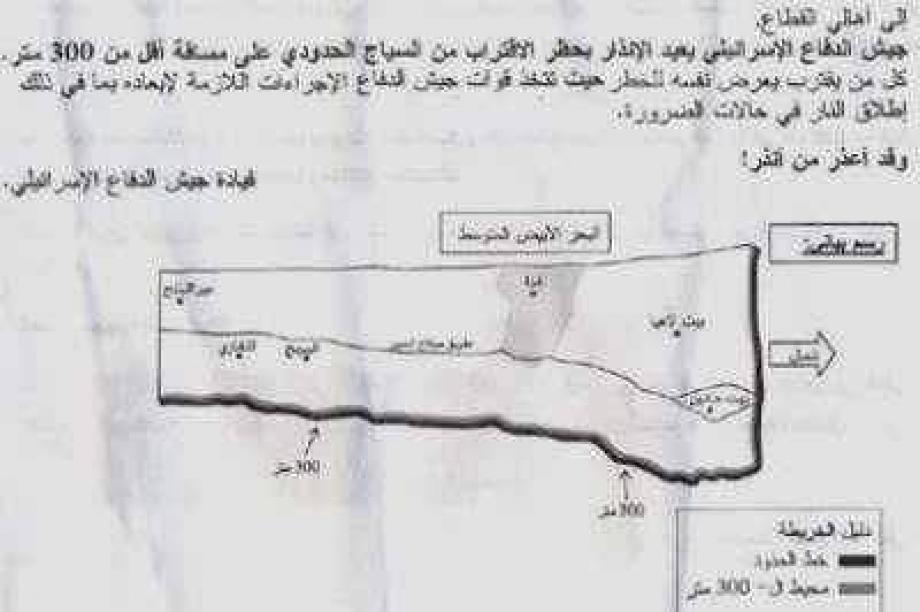 الى أهالي القطاع,
جيش الدفاع الإسرائيلي يعيد الإنذار بحظر الاقتراب من السياج الحدودي على مسافة أقل من 300 متر.
كل من يقترب يعرض نفسه للخطر حيث تتخذ قوات جيش الدفاع الإجراءات اللازمة لإبعاده بما في ذلك
إطلاق النار في حالات الضرورة.
وقد أعذر من أنذر!
قيادة جيش الدفاع الإسرائيلي.
البحر الأبيض المتوسط
غزة
دير البلح
بيت لاهيا
طريق صلاح الدين
البريج
المغازي
شمال
بيت حانون
300 متر
300 متر
دليل الخريطة
خط الحدود
محيط ال- 300 متر